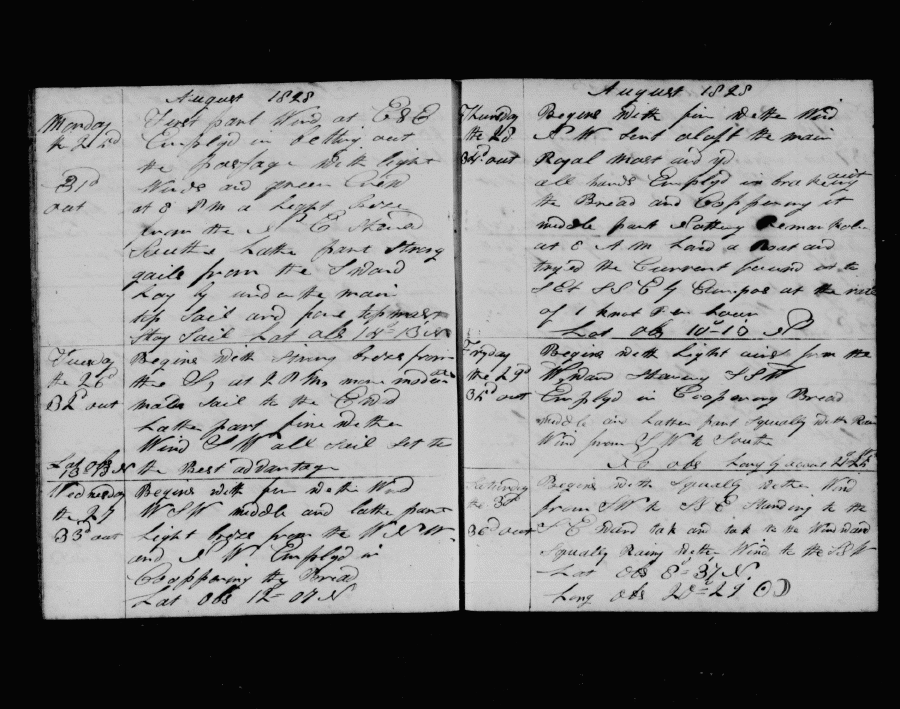 August 1828
Monday
the 25d
31d
out
First part Wind at E S E
Employd in belting out
the passage with light
Winds and green Crew
at 8 P M a light breze
from the N E Stood
South Lather part Strong
gails from the Sward
Lay by under the main
top Sail and fore topmast
Stay Sail Lat obs 14°-13 N
Tuesday
the 26d
32d out
Lat obs
13-13 N
Begins with Strong brese from
the S, at 2 P M more moderate
made Sail to the Ewd
Lather part fine wether
Wind SW all sail set to
the Best addvantage
Wednesday
the 27
33d out
Begins with fin wether Wind
WSW middle and lather part
Light breze from the W N W
and N W Employd in
Coopering the Bread
Lat obs 12-07 N
August 1828
Thursday
the 28
34d out
Begins with fin wether Wind
N W Sent aloft the main
Royal Mast and yd
all hands Employd in braking out
the Bread and Coopering it
middle part Nothing Remarkable
at 8 A M Lowd a Boat and
tryed the Current found it to
Set S S E by Compas at the rate
of 1 knot per hour
Lat obs 10°-10 N
Fryday
the 29d
35d out
Begins with Light airs from the
Wward Staring SSW
Employd in Coopering Bread
middle and Lather part Squally with Rain
Wind from SW to South
No obs Long by acount
Saturday
the 30d
36d out
Begins with Squally wether Wind
from SW to S E Standing to the
S E Ward tak and tak to the Windward
Squally Rainy wether Wind to the SSW
Lat obs 8°-37 N
Long obs 20°-29